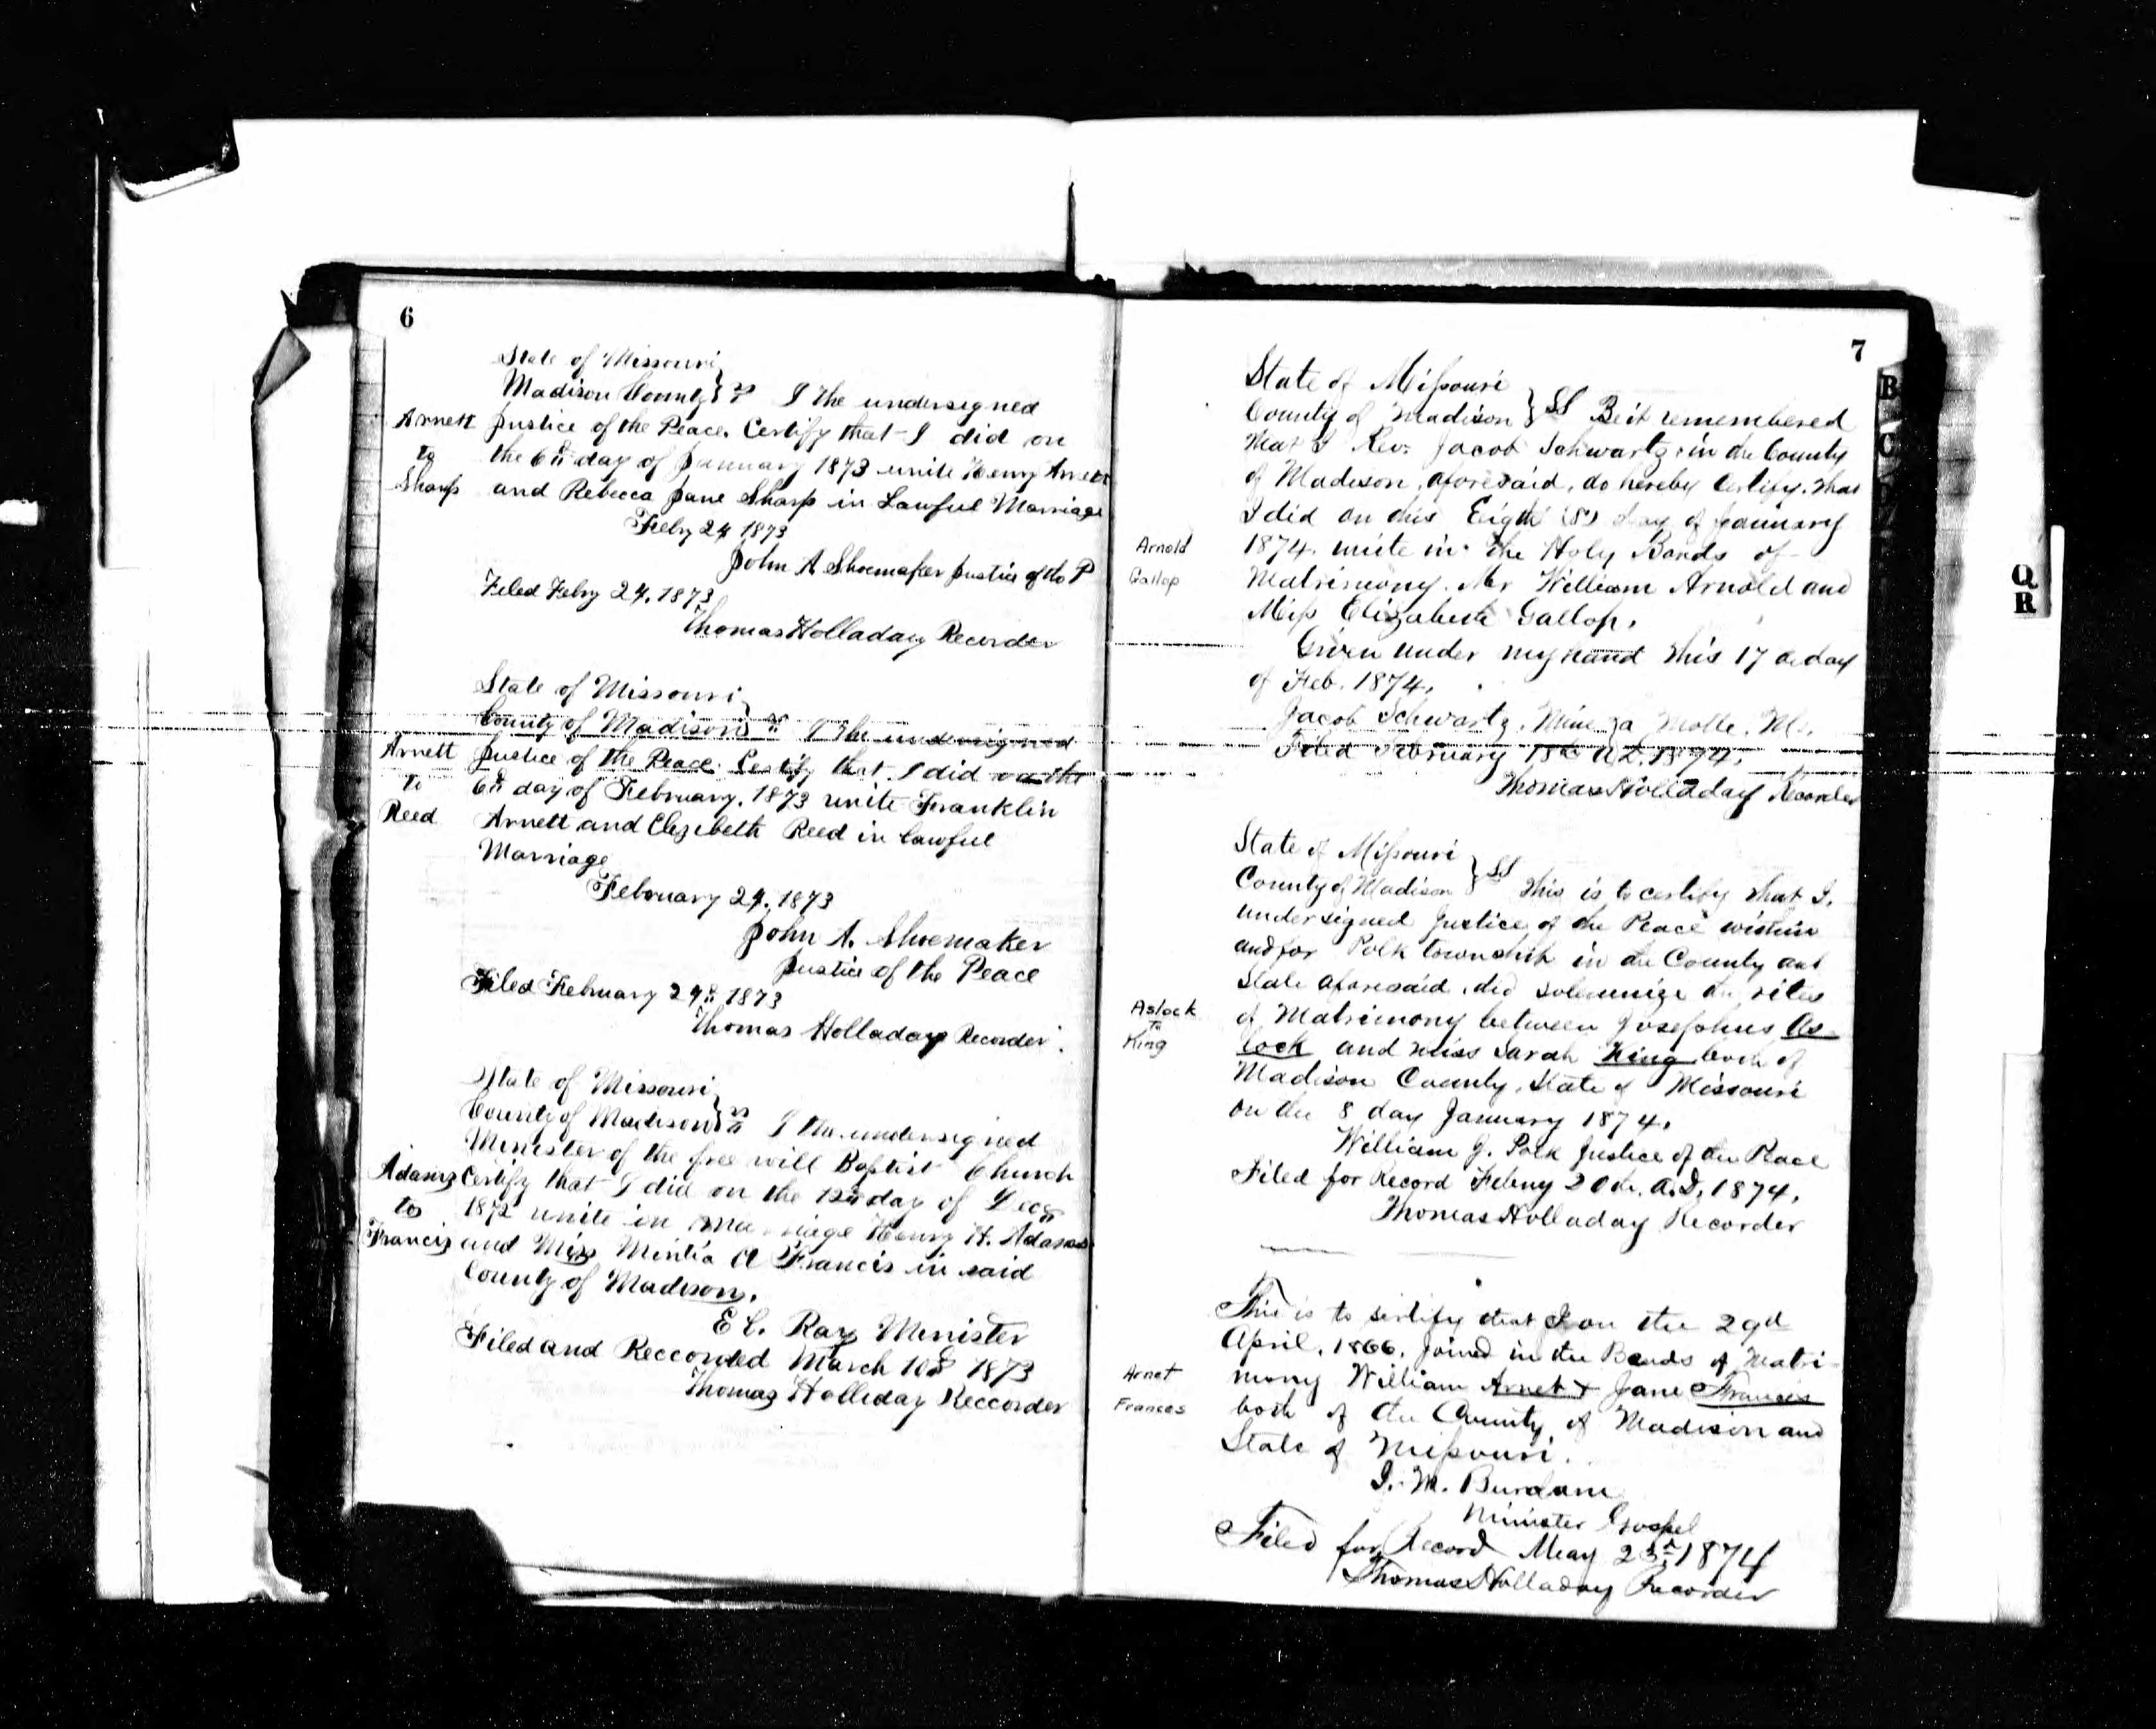 6
State of Missouri
Madison County } ss I the undersigned
Arnett Justice of the Peace. Certify that I did on
to the 6th day of January 1873 unite Henry Arnett
Sharp and Rebecca Jane Sharp in Lawful Marriage
Feby 24 1873
John A Shoemaker Justice of the P
Filed Feby 24, 1873
Thomas Holladay Recorder
State of Missouri
County of Madison ss I the undersigned
Arnett Justice of the Peace Certify that I did on the
to 6th day of February, 1873 unite Franklin
Reed Arnett and Elezibeth Reed in lawful
Marriage
February 24, 1873
John A. Shoemaker
Justice of the Peace
Filed February 24th 1873
Thomas Holladay Recorder
State of Missouri
County of Madison } ss I the undersigned
Minister of the free will Baptist Church
Adams Certify that I did on the 12th day of Decr
to 1872 unite in Marriage Henry H. Adams
Francis and Miss Mintia A Francis in said
County of Madison.
E C. Ray Minister
Filed and Reccorded March 10th 1873
Thomas Holliday Reccorder
7
State of Missouri
County of Madison } SS Be it remembered
that I Rev. Jacob Schwartz in the County
of Madison, aforesaid, do hereby Certify, that
I did on this Eigth (8) day of January
Arnold 1874. unite in the Holy Bonds of
Gallop Matrimony. Mr William Arnold and
Miss Elizabeth Gallop.
Given under my hand this 17 day
of Feb. 1874.
Jacob Schwartz. Mine La Motte. Mo.
Filed February 18th A.D. 1874.
Thomas Holladay Recorder
State of Missouri
County of Madison } SS This is to certify that I,
undersigned Justice of the Peace within
and for Polk township in the County and
State aforesaid, did solemnize the rites
Aslock of Matrimony between Josephus As-
to
King lock and miss Sarah King both of
Madison County, State of Missouri
on the 8 day January 1874.
William J. Polk Justice of the Peace
Filed for Record Febuy 20th. A.D. 1874.
Thomas Holladay Recorder
This is to sertify that I on the 29d
April, 1866. Joined in the Bands of Matri-
Arnet mony William Arnet & Jane Francis
Frances both of the County of Madison and
State of Missouri.
Minister Gospel
Filed for Record May 23rd 1874
Thomas Holladay Recorder
B
C
Q
R